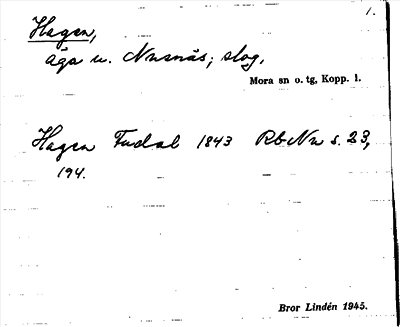 1.
Hagen,
äga u. Nusnäs; slog,
Mora sn o. tg, Kopp. l.
Hagen Fudal 1843 Rb Nn s. 23,
194.
Bror Lindén 1945.